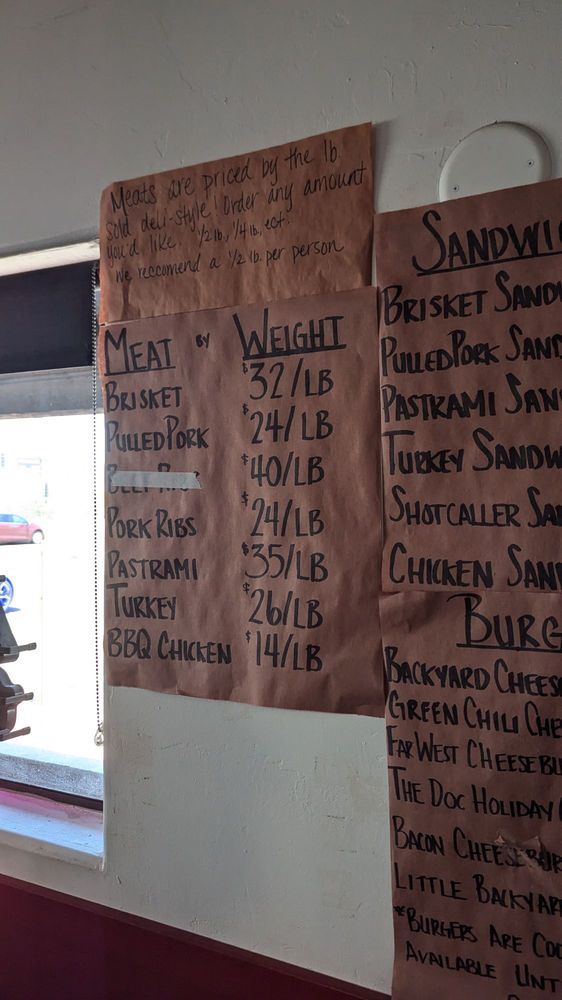 Meats are priced by the lb.
sold deli-style! Order any amount
you'd like. 1/2 lb., 1/4 lb., ect.
we reccomend a 1/2 lb. per person
MEAT BY WEIGHT
BRISKET $32/LB
PULLED PORK $24/LB
$40/LB
PORK RIBS $24/LB
PASTRAMI $35/LB
TURKEY $26/LB
BBQ CHICKEN $14/LB
SANDWI
BRISKET SAND
PULLED PORK SAND
PASTRAMI SAN
TURKEY SANDW
SHOTCALLER SA
CHICKEN SAN
BURG
BACKYARD CHEES
GREEN CHILI CHE
FAR WEST CHEESEBU
THE DOC HOLIDAY
BACON CHEESEBUR
LITTLE BACKYAR
*BURGERS ARE COO
AVAILABLE UNT